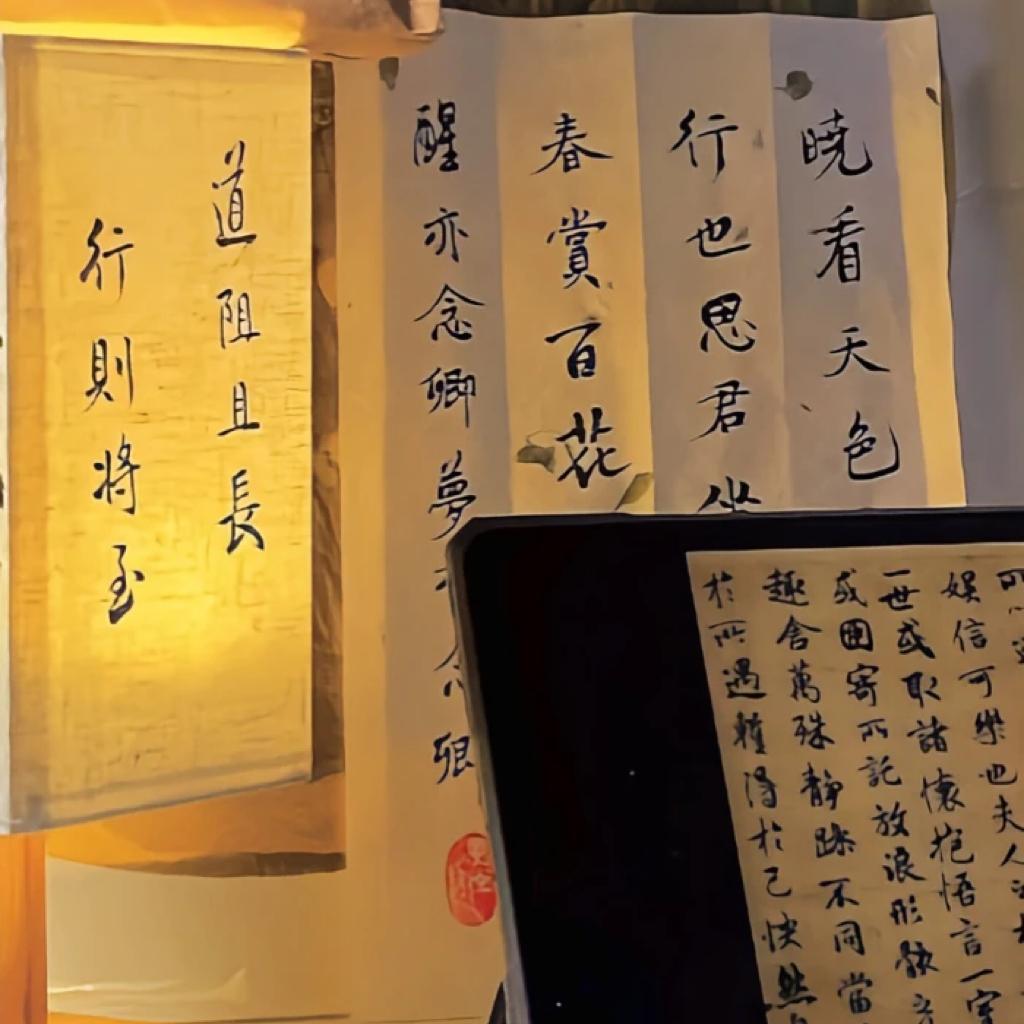 晓看天色
行也思君坐
春賞百花
醒亦念卿夢亦念卿
道阻且長
行則将至
娱信可樂也夫人之相
一世或取諸懷抱悟言一室
或因寄所託放浪形骸之
趣舍萬殊静躁不同當
於所遇暫得於己快然